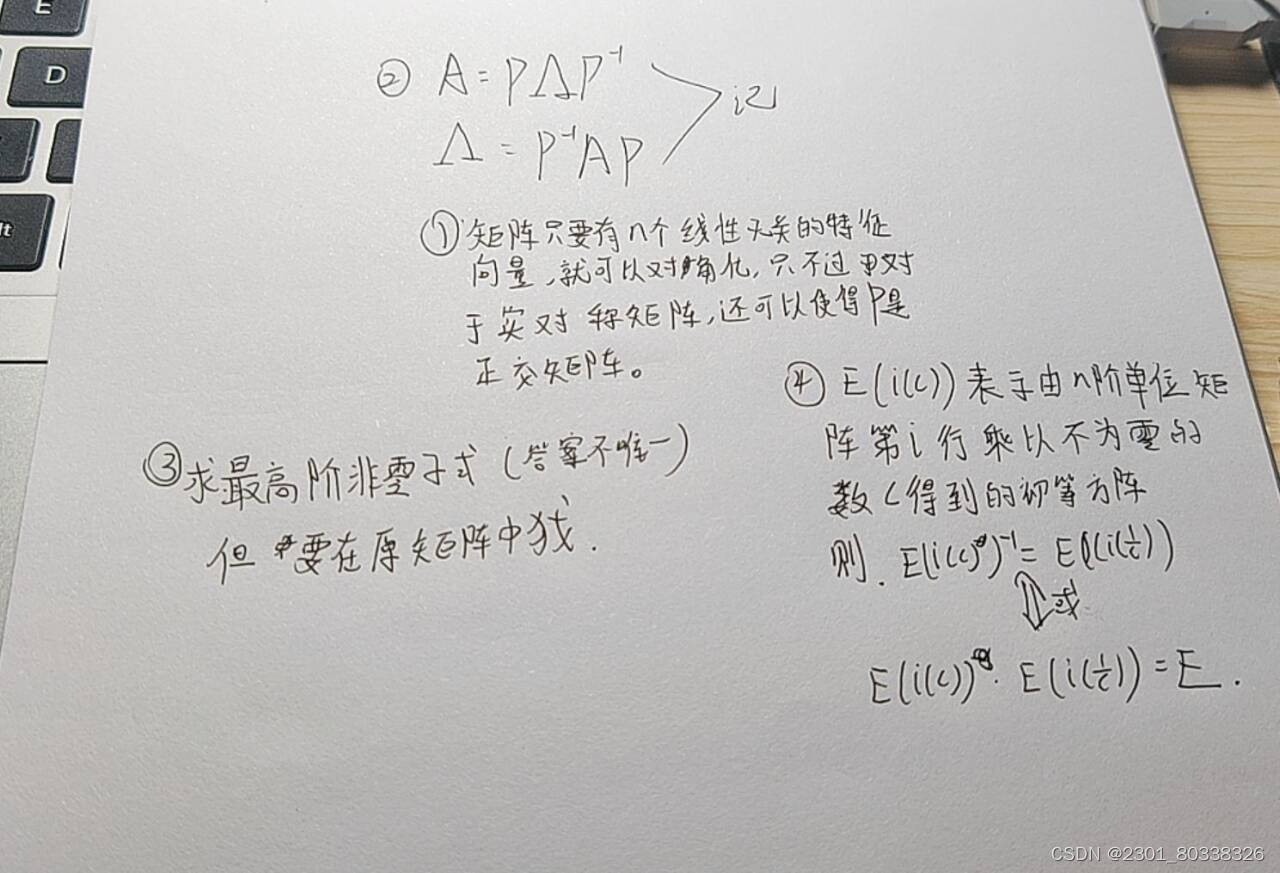 E
D
lt
② A = PΛP⁻¹
Λ = P⁻¹AP
记
① 矩阵只要有n个线性无关的特征
向量,就可以对角化,只不过对
于实对称矩阵,还可以使得P是
正交矩阵。
③ 求最高阶非零子式(答案不唯一)
但要在原矩阵中找.
④ E(i(c))表示由n阶单位矩
阵第i行乘以不为零的
数c得到的初等方阵
则. E(i(c))⁻¹ = E(i(1/c))
⇕或
E(i(c))· E(i(1/c)) = E.
CSDN @2301_80338326